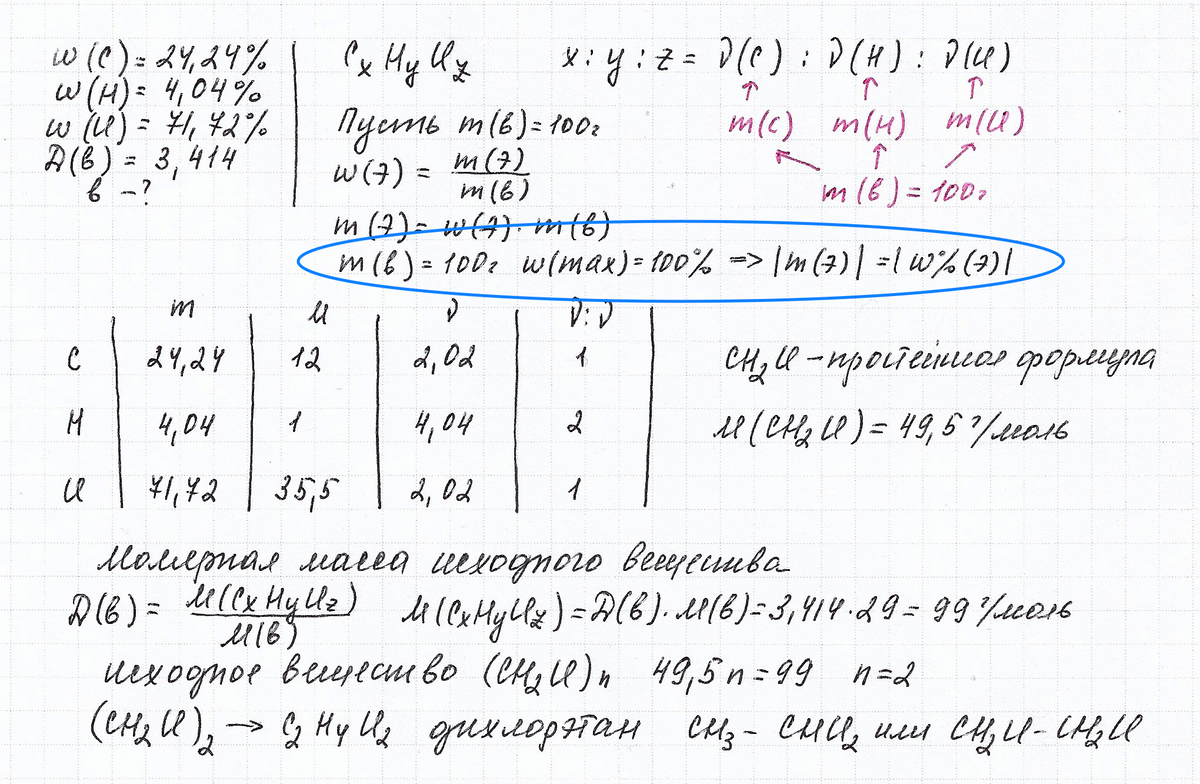 w(C) = 24,24%
w(H) = 4,04%
w(Cl) = 71,72%
D(в) = 3,414
в – ?
CxHyClz x : y : z = ν(C) : ν(H) : ν(Cl)
m(C) m(H) m(Cl)
m(в) = 100г
Пусть m(в) = 100г
w(э) = m(э) / m(в)
m(э) = w(э) · m(в)
m(в) = 100г w(max) = 100% => |m(э)| = |w%(э)|
m M ν ν:ν
C 24,24 12 2,02 1
H 4,04 1 4,04 2
Cl 71,72 35,5 2,02 1
CH₂Cl – простейшая формула
M(CH₂Cl) = 49,5 г/моль
Молярная масса исходного вещества
D(в) = M(CxHyClz) / M(в) M(CxHyClz) = D(в) · M(в) = 3,414 · 29 = 99 г/моль
исходное вещество (CH₂Cl)n 49,5n = 99 n = 2
(CH₂Cl)₂ → C₂H₄Cl₂ дихлорэтан CH₃ – CHCl₂ или CH₂Cl – CH₂Cl